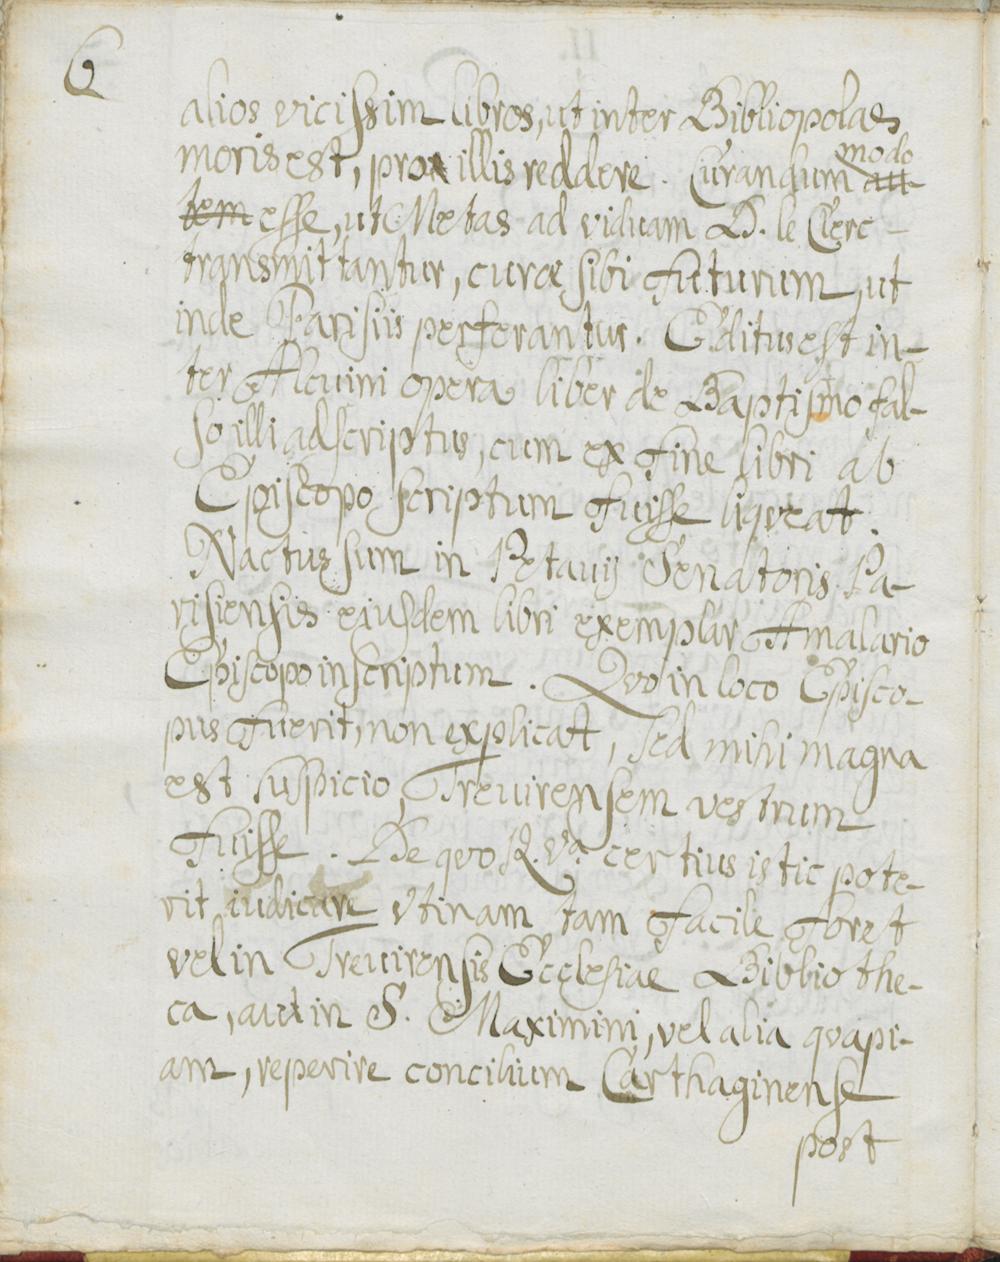 6
alios vicissim libros, ut inter Bibliopolas
moris est, pro illis reddere. Curandum modo au-
tem esse, ut Metas ad viduam D. le Clerc
transmittantur, curæ sibi futurum, ut
inde Parisiis perferantur. Editus est in-
ter Alcuini opera liber de Baptismo fal-
so illi adscriptus, cum ex fine libri ab
Episcopo scriptum fuisse liqueat.
Nactus sum in Petavij Senatoris Pa-
risiensis ejusdem libri exemplar Amalario
Episcopo inscriptum. Quo in loco Episco-
pus fuerit, non explicat, sed mihi magna
est suspicio, Trevirensem vestrum
fuisse. De quo R. Vª. certius istic pote-
rit iudicare Utinam tam facile foret
vel in Trevirensis Ecclesiae Bibliothe-
ca, aut in S. Maximini, vel alia quapi-
am, reperire concilium Carthaginense
post